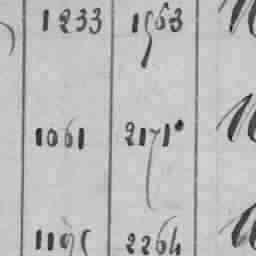 1233 1563
1061 2171
1195 2264